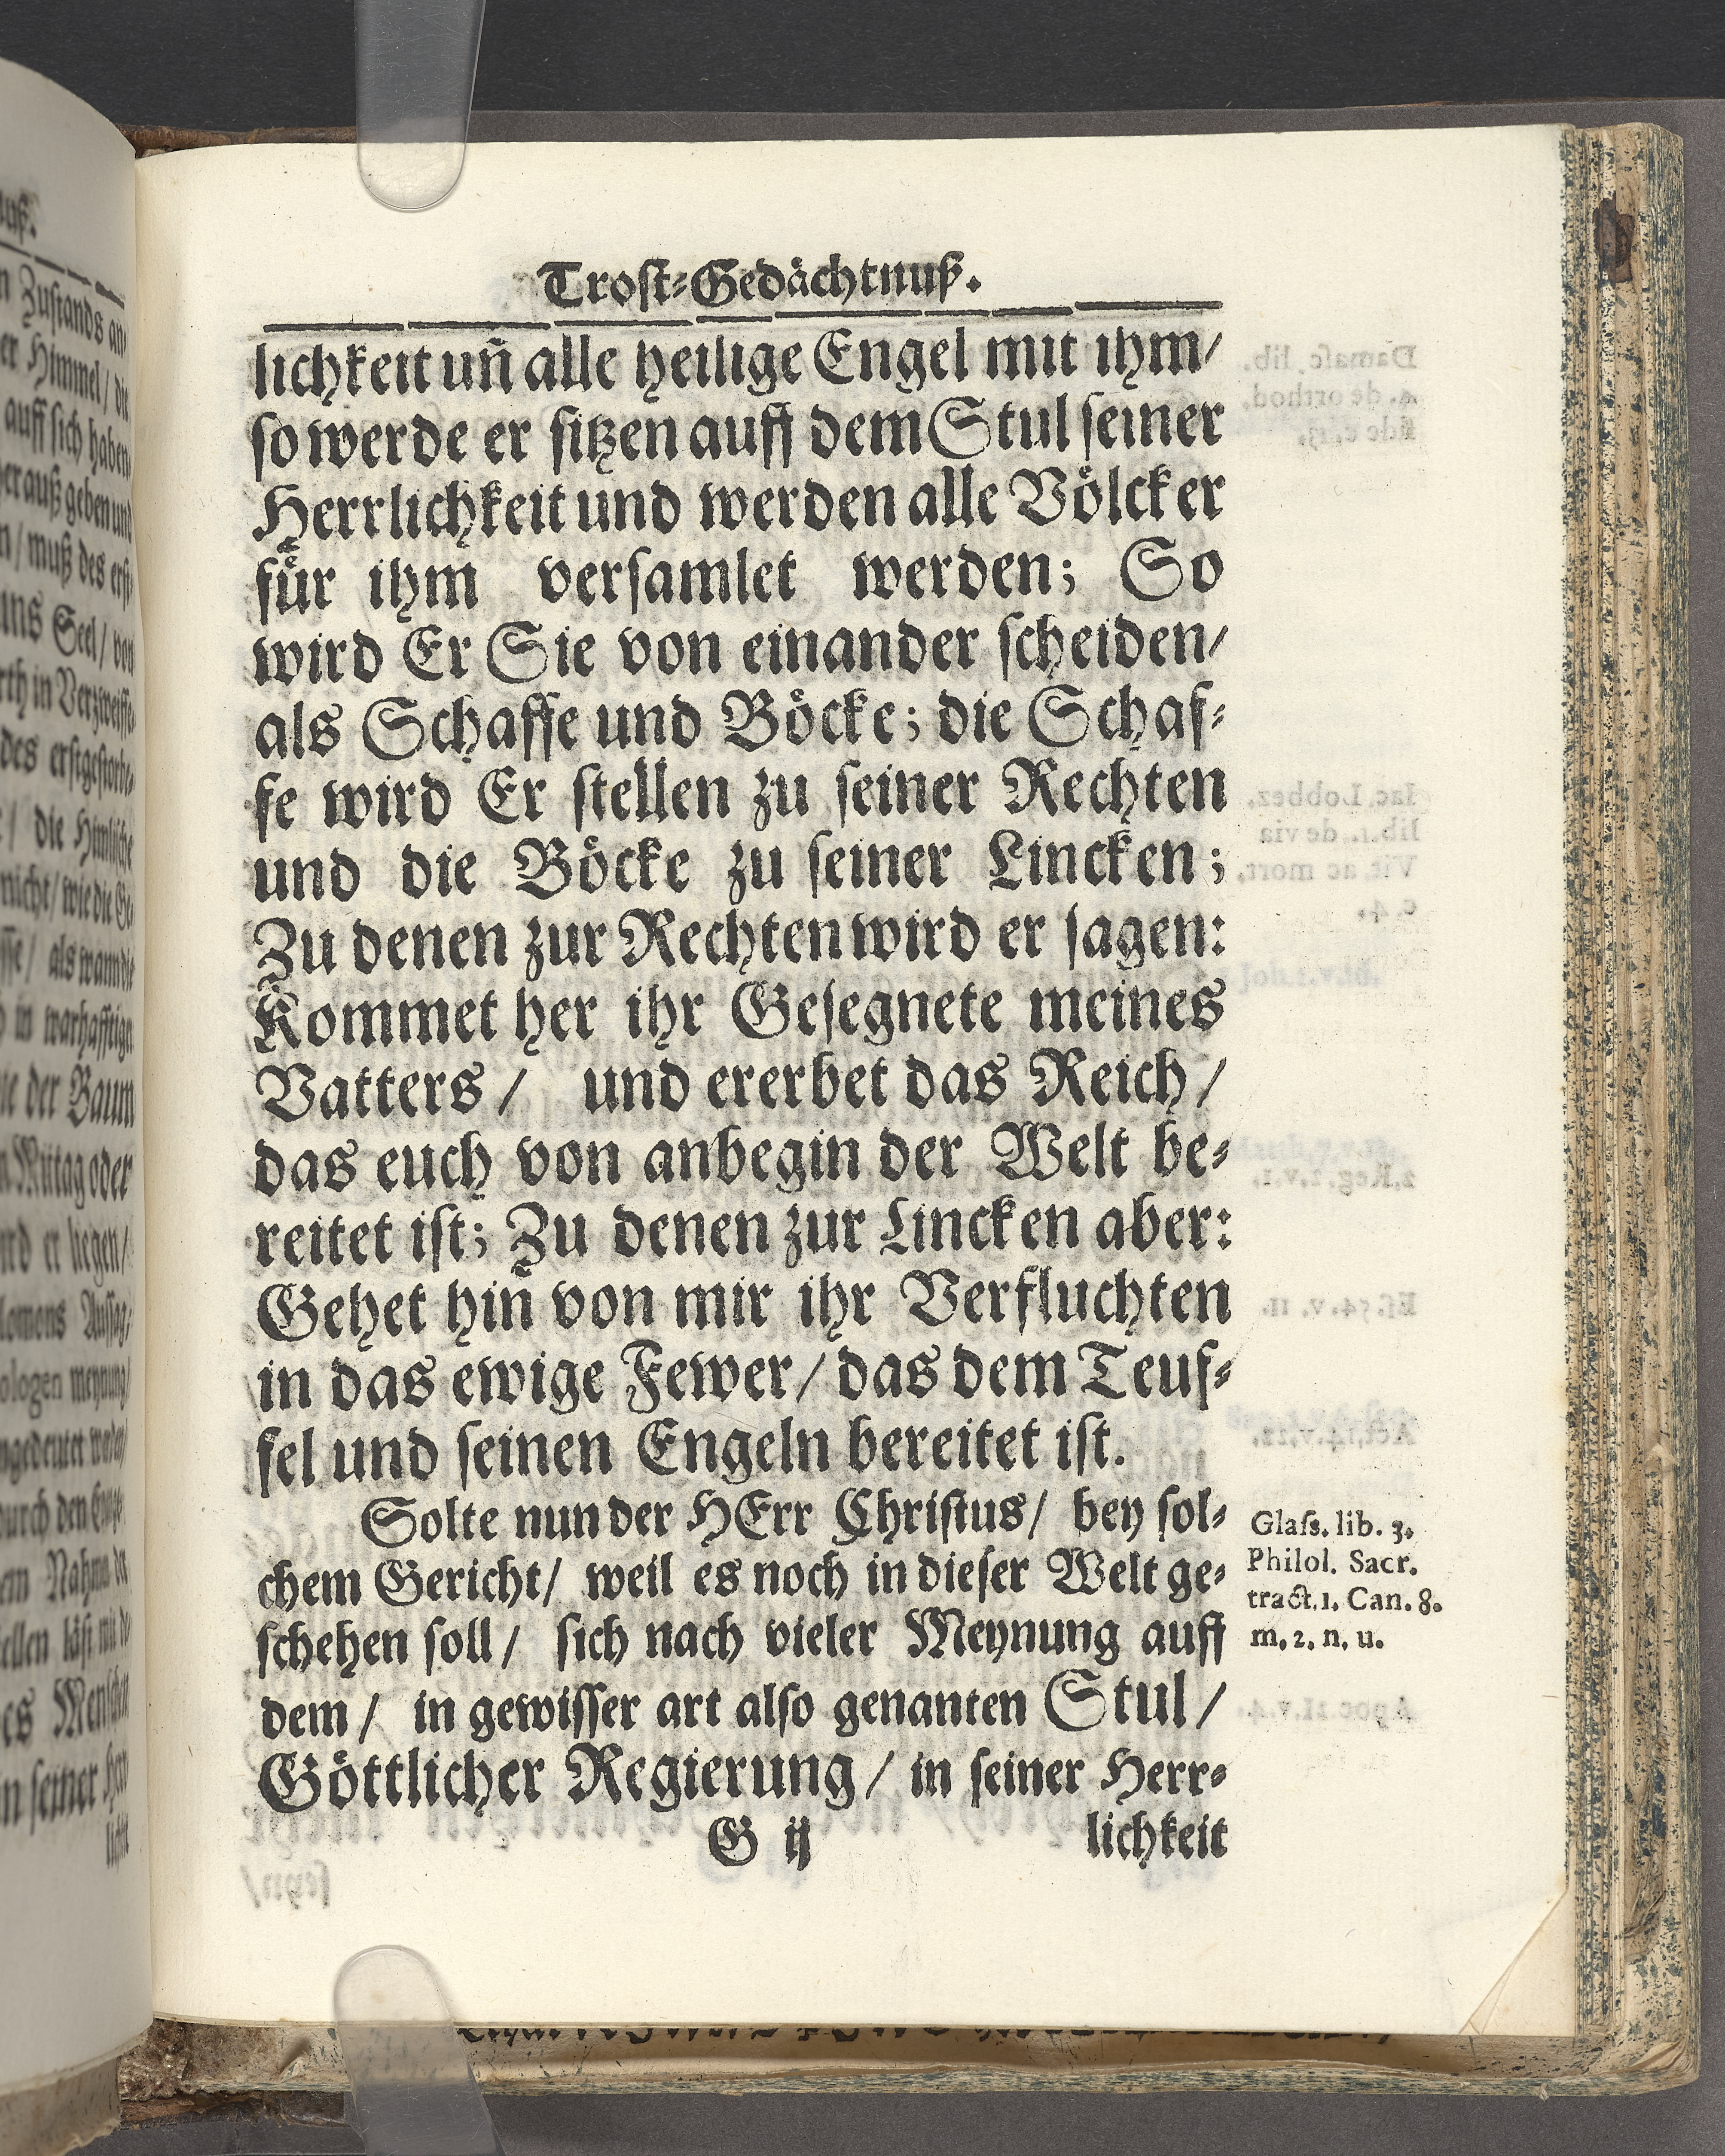 Trost-Gedächtnuß.
lichkeit uñ alle heilige Engel mit ihm/
so werde er sitzen auff dem Stul seiner
Herrlichkeit und werden alle Völcker
für ihm versamlet werden; So
wird Er Sie von einander scheiden/
als Schaffe und Böcke; die Schaf-
fe wird Er stellen zu seiner Rechten
und die Böcke zu seiner Lincken;
Zu denen zur Rechten wird er sagen:
Kommet her ihr Gesegnete meines
Vatters/ und ererbet das Reich/
das euch von anbegin der Welt be-
reitet ist; Zu denen zur Lincken aber:
Gehet hiñ von mir ihr Verfluchten
in das ewige Fewer/ das dem Teuf-
fel und seinen Engeln bereitet ist.
Solte nun der HErr Christus/ bey sol-
chem Gericht/ weil es noch in dieser Welt ge-
schehen soll/ sich nach vieler Meynung auff
dem/ in gewisser art also genanten Stul/
Göttlicher Regierung/ in seiner Herr-
G ij lichkeit
Glass. lib. 3.
Philol. Sacr.
tract. 1. Can. 8.
m. 2. n. u.